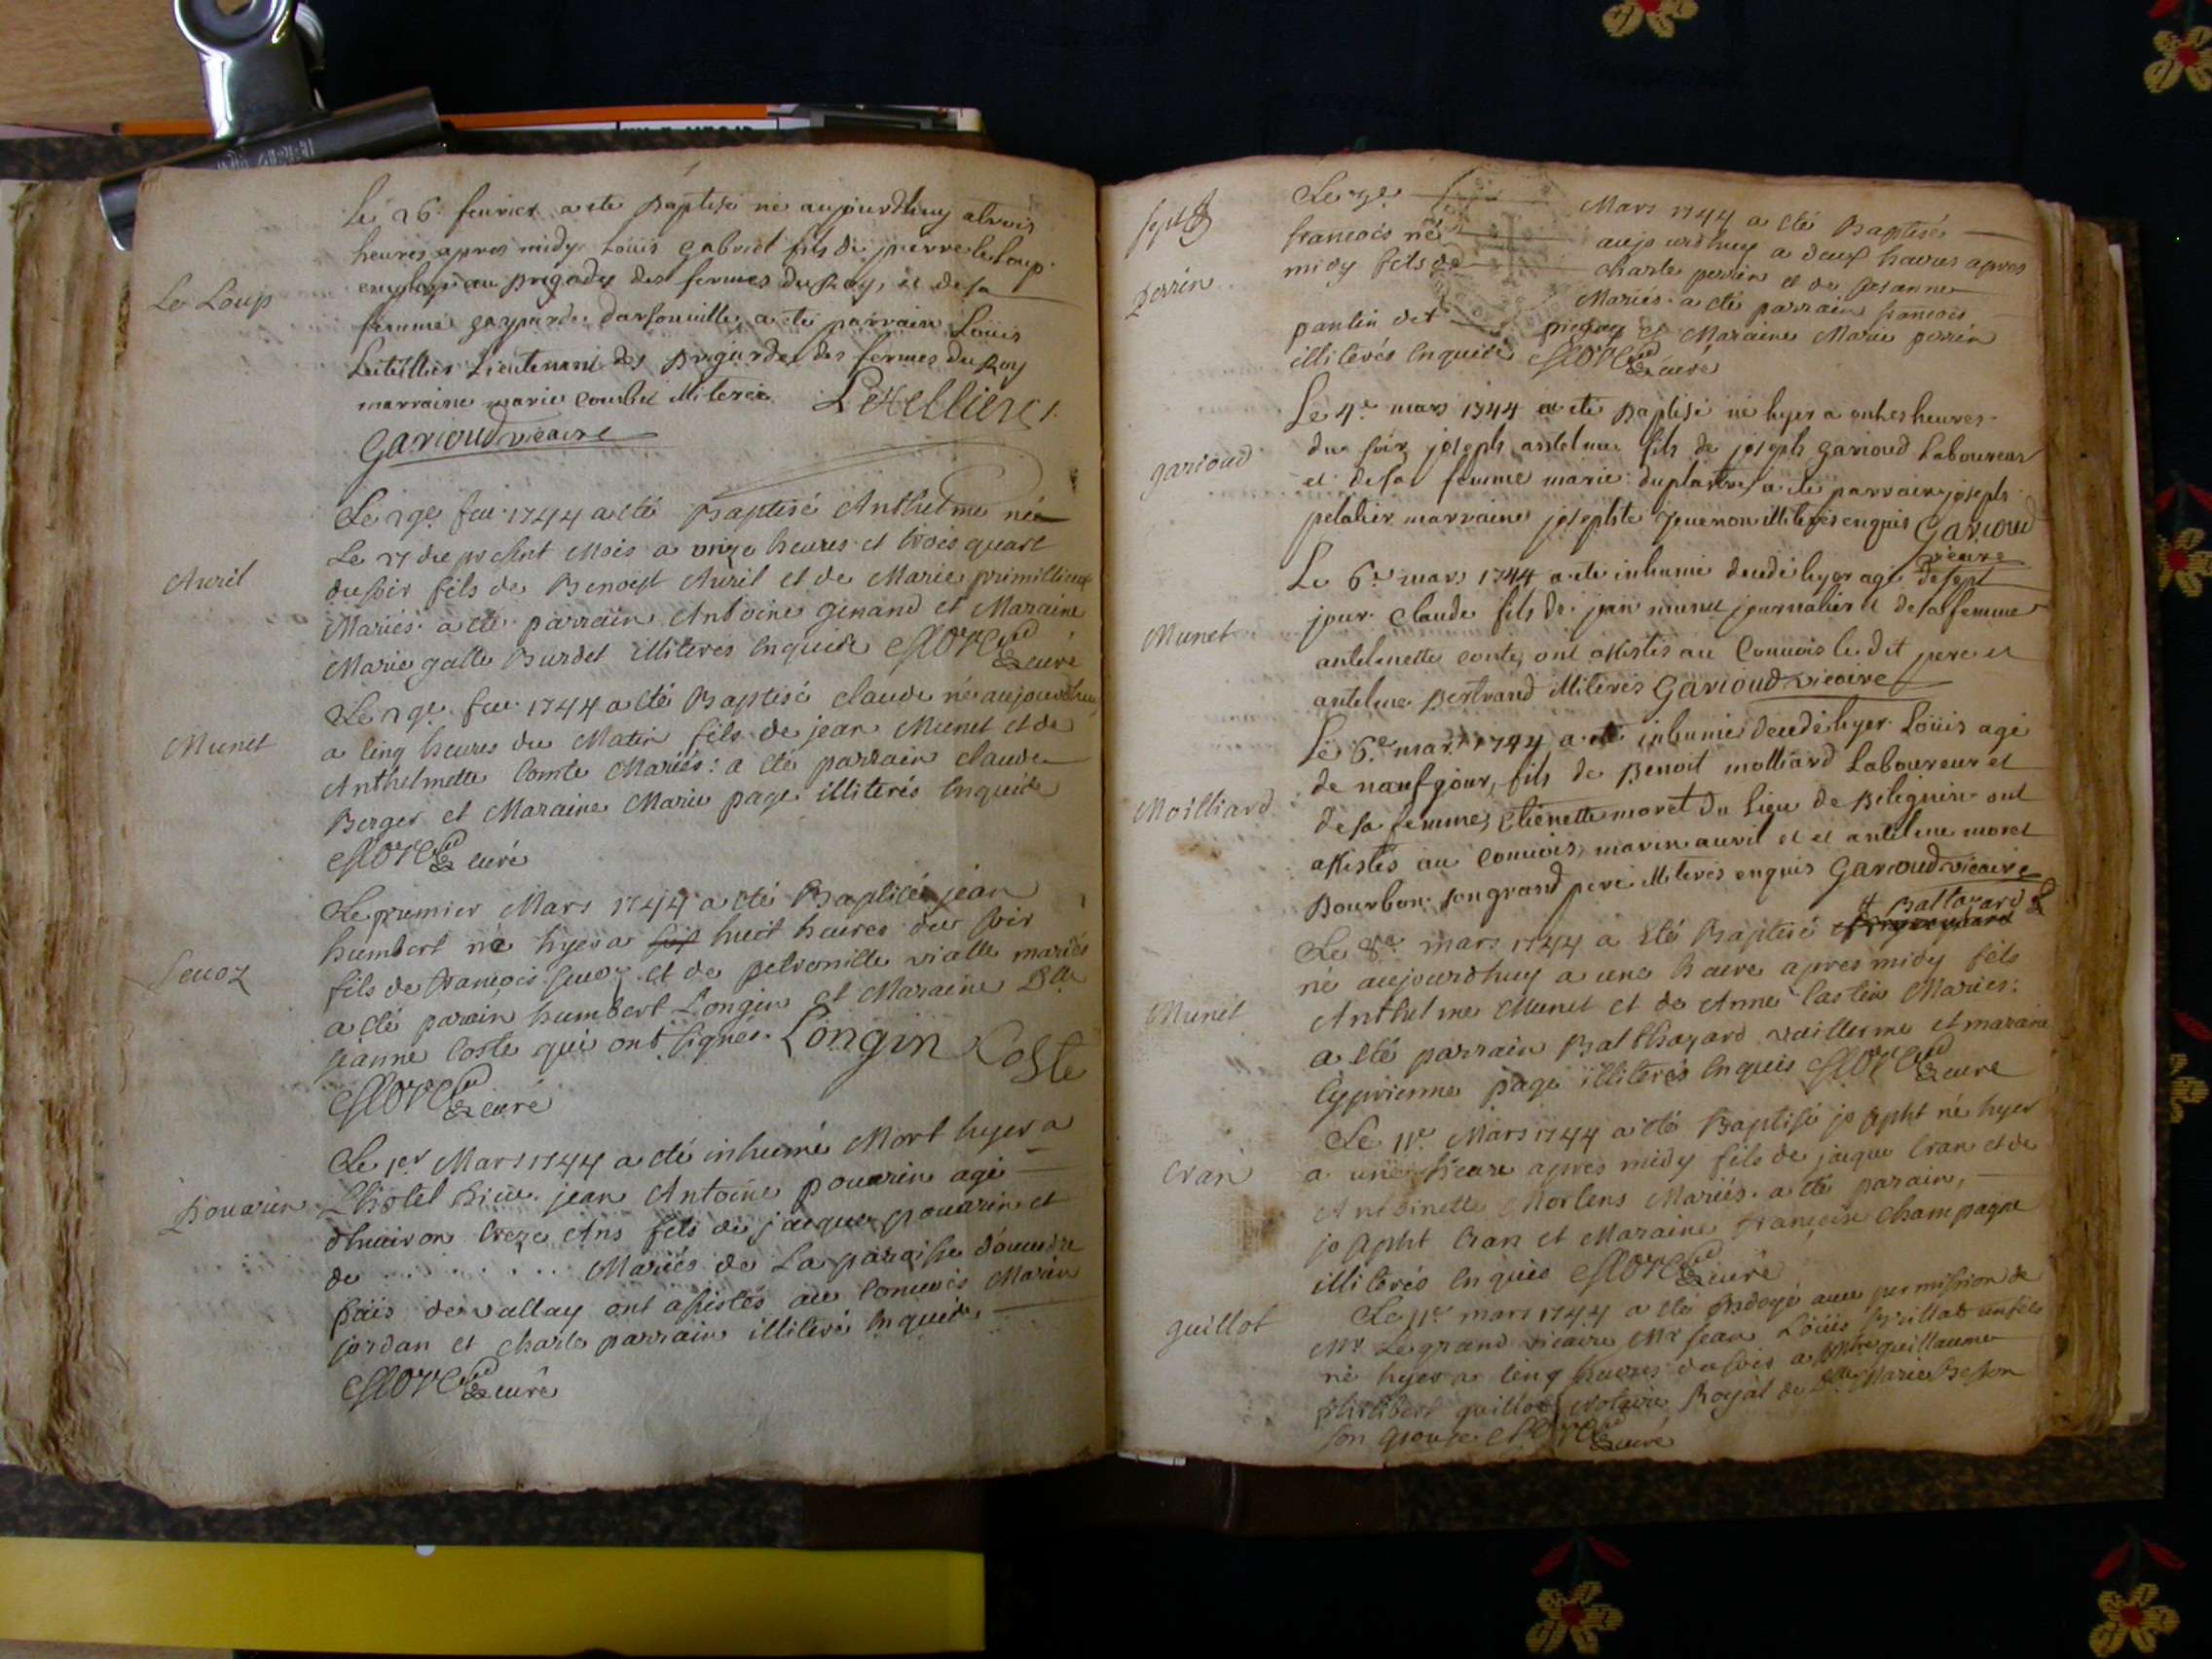 Le 26. feurier a ete Baptisé né aujourdhuy a trois
heures apres midy Loüis Gabriel fils de pierre le Loup
Le Loup
employé au brigades des fermes du Roy, et de sa
femme gasparde darsonuille, a été parrain Loüis
Letellier Lieutenant des brigardes des fermes du Roy
marraine marie illiteree Letellier
Garioud vicaire
Le 29e feu. 1744 a été Baptisé Anthelme né
Le 27 du present Mois a onze heures et trois quart
Auril
du soir fils de Benoist Auril et de Marie primillieux
Mariés. a été parrain Antoine genand et Maraine
Marie galle Burdet illiterés Enquis curé
Le 29e. feu. 1744 a été Baptisé claude né aujourdhuy
Munet
a Cinq heures du Matin fils de jean Munet et de
Anthelmette Comte Mariés: a été parrain claude
Berger et Maraine Marie page illiterés Enquis
curé
Le premier Mars 1744 a été Baptisé jean
humbert né hyer a huit heures du soir
Seuoz
fils de françois Seuoz et de petronille vialle mariés
a été parrain humbert Longin et Maraine Dlle
jeanne Coste qui ont signés. Longin Coste
curé
Le 1er Mars 1744 a été inhumé Mort hyer a
Pouarin
L'hotel Dieu. jean Antoine pouarin agé
d'huiron treze Ans fils de jacque pouarin et
de . . . . . . . . Mariés de La paroisse
païs de vallay ont asistés au Conuois Marin
jordan et charle parrain illiteré Enquis
curé
Le 2e Mars 1744 a été Baptisé
françois né aujourdhuy a deux heures apres
perrin
midy fils de charle perrin et de Susanne
pantin Mariés. a été parrain francois
et Maraine Marie perrin
illiterés Enquis curé
Le 4e mars 1744 a eté Baptisé né hyer a onhes heures
garioud
du soir joseph antelme fils de joseph garioud Laboureur
et de sa femme marie duplastre, a été parrain joseph
pelatier marraine josephte illiterés enquis Garioud
vicaire
Le 6e mars 1744 a eté inhumé decedé hyer agé de sept
Munet
jour. Claude fils de jean munet journalier et de sa femme
antelmette conte, ont assistés au Conuois le dit pere et
antelme Bertrand illiterés Garioud vicaire
Le 6e mars 1744 a eté inhumé decedé hyer Loüis agé
Moilliard
de neuf jour, fils de Benoit molliard Laboureur et
de sa femme, Etienette moret du Lieu de Bilignin ont
assistés au Conuois, marin auril et et antelme moret
Bourbon son grand pere illiterés enquis Garioud vicaire
# Baltazard
Le 8e mars 1744 a été Baptisé
né aujourdhuy a une heure apres midy fils
Munet
Anthelme Munet et de Anne Castin Mariés:
a été parrain Balthazard vuillerme et maraine
Cyprienne page illiterés Enquis curé
Le 11e Mars 1744 a été Baptisé jospht né hyer
Cran
a une heure apres midy fils de jacque Cran et de
Antoinette Morlens Mariés. a été parain,
jospht Cran et Maraine françoise champagne
illiterés Enquis curé
Le 11e mars 1744 a été Ondoyé auec permission de
guillot
Mr Le grand vicaire Mr jean Loüis un fils
né hyer a Cinq heures du soir a guillaume
philibert guillot Notaire Royal de Dlle Marie Besson
son Epouse. curé